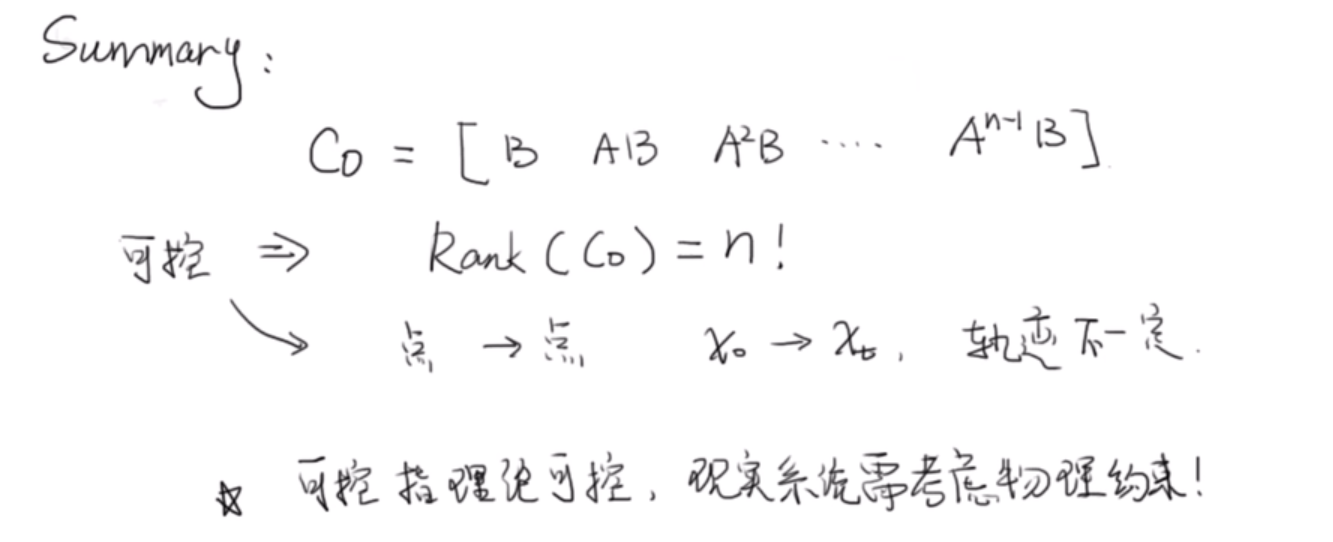 Summary:
Co = [ B AB A²B .... Aⁿ⁻¹B ]
可控 ⇒ Rank (Co) = n!
点 → 点 x₀ → xₜ, 轨迹不一定.
☆ 可控指理论可控, 现实系统需考虑物理约束!